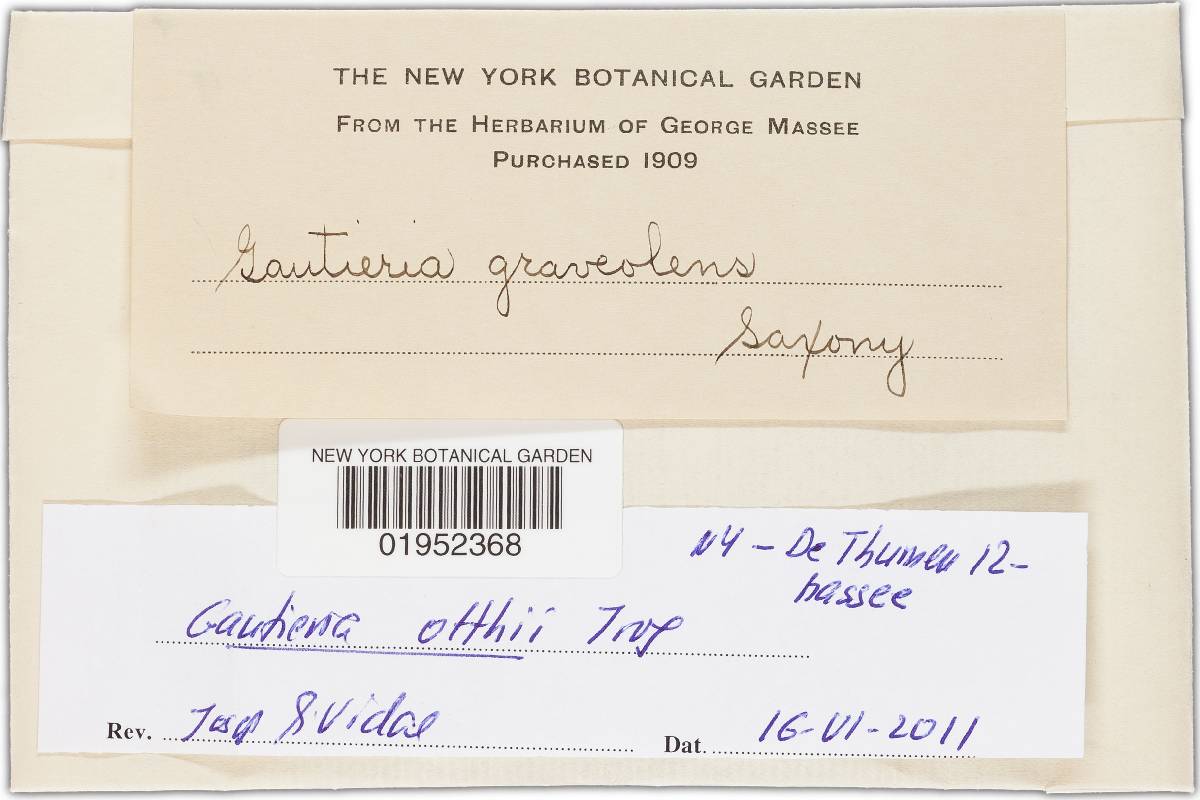 THE NEW YORK BOTANICAL GARDEN
FROM THE HERBARIUM OF GEORGE MASSEE
PURCHASED 1909
Gautieria graveolens
Saxony
NEW YORK BOTANICAL GARDEN
01952368
NY – De Thumen 12–
Massee
Gautieria otthii Trog
Rev. Josep Vidal
Dat. 16-VI-2011